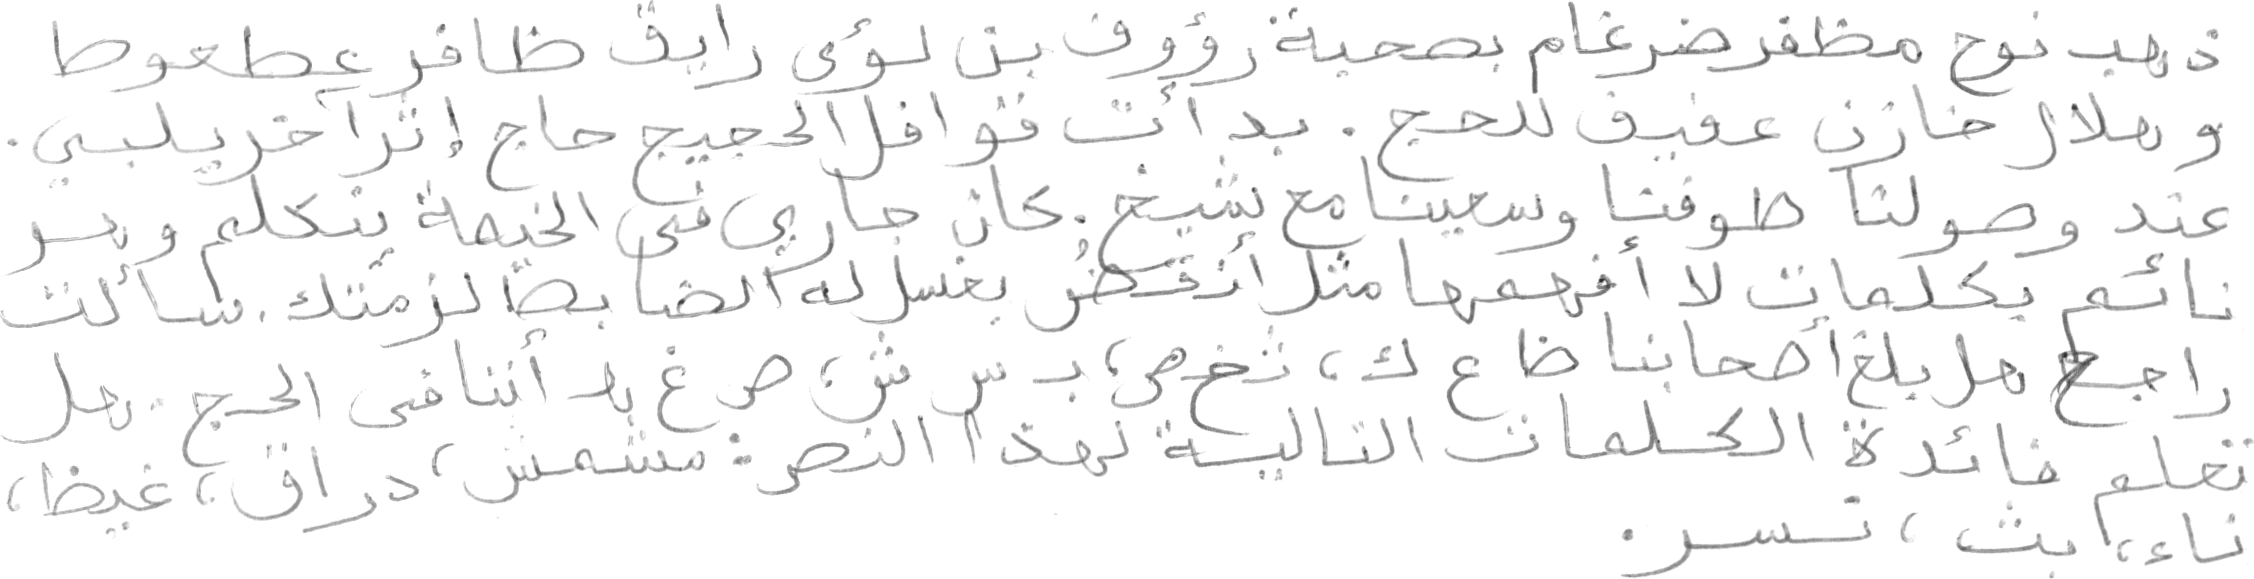 ذهب نوح مظفر ضرغام بصحبة رؤوف بن لؤي رايق ظافر عطعوط
وهلال خازن عفيف للحج. بدأت قوافل الحجيج حاج إثر آخر يلبي.
عند وصولنا طوفنا وسعينا مع شيخ. كان جاري في الخيمة يتكلم وهو
نائم بكلمات لا أفهمها مثل أزقط يغسل له الضابط لزمتك. سألت
راجح هل بلغ أصحابنا ظ ع ك، ث خ ص، ب س ش، ص غ بد أننا في الحج. هل
تعلم فائدة الكلمات التالية لهذا النص: مشمش، دراق، غيظ،
ناء، بث، تسر.